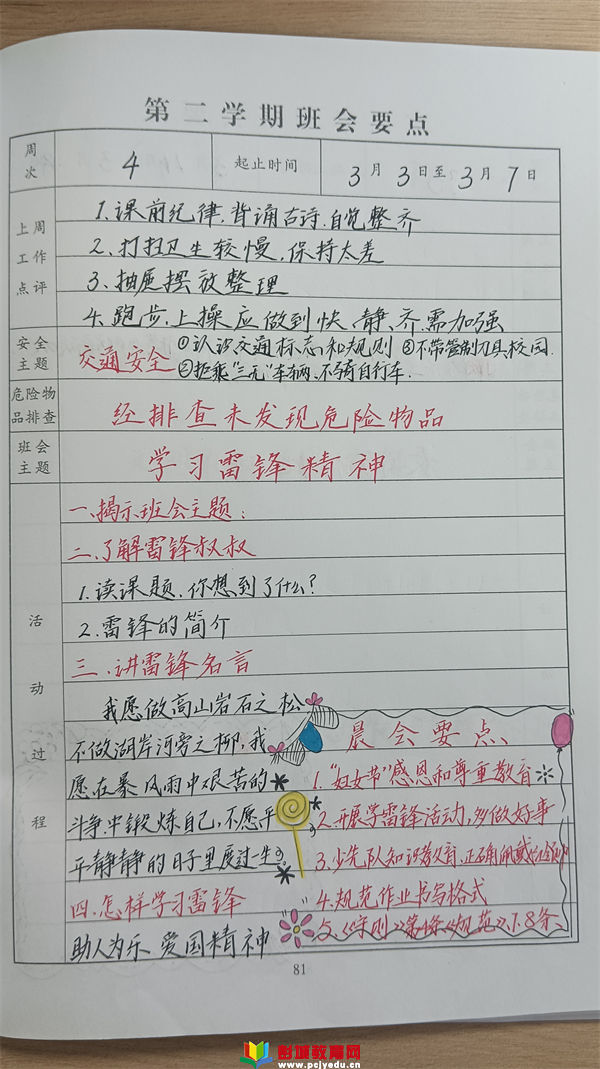 第二学期班会要点
周次 4 起止时间 3月3日至3月7日
上周工作点评
1.课前纪律.背诵古诗.自觉整齐
2.打扫卫生较慢,保持太差
3.抽屉摆放整理
4.跑步.上操应做到快、静、齐.需加强
安全主题 交通安全 ①认识交通标志和规则 ③不带管制刀具校园.
②拒乘“三无”车辆、不骑自行车.
危险物品排查 经排查未发现危险物品
班会主题 学习雷锋精神
活动过程
一、揭示班会主题:
二、了解雷锋叔叔
1.读课题.你想到了什么?
2.雷锋的简介
三.讲雷锋名言
我愿做高山岩石之松
不做湖岸河旁之柳,我
愿在暴风雨中艰苦的
斗争中锻炼自己,不愿平
平静静的日子里度过一生。
四.怎样学习雷锋
助人为乐 爱国精神
晨会要点
1.“妇女节”感恩和尊重教育
2.开展学雷锋活动,多做好事
3.少先队知识教育.正确佩戴
4.规范作业书写格式
5.《守则》第4条《规范》7.8条、
81
彭城教育网
www.pcjyedu.cn